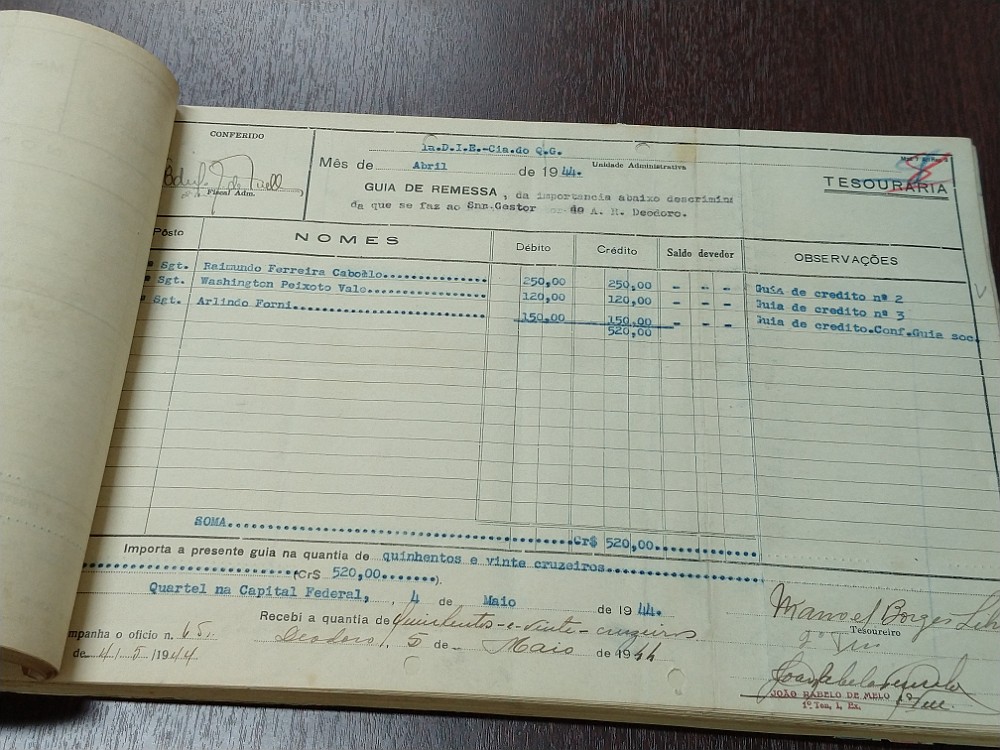 CONFERIDO
Fiscal Adm.
1a.D.I.E.-Cia.do Q.G.
Unidade Administrativa
Mês de Abril de 1944.
GUIA DE REMESSA, da importancia abaixo descrimina
da que se faz ao Snr.Gestor do A. H. Deodoro.
TESOURARIA
Pôsto NOMES Débito Crédito Saldo devedor OBSERVAÇÕES
º Sgt. Raimundo Ferreira 250,00 250,00 - - - Guia de credito nº 2
º Sgt. Washington Peixoto Vale 120,00 120,00 - - - Guia de credito nº 3
º Sgt. Arlindo Forni 150,00 150,00 - - - Guia de credito.Conf.Guia soc.
520,00
SOMA Cr$ 520,00
Importa a presente guia na quantia de quinhentos e vinte cruzeiros
(Cr$ 520,00.......).
Quartel na Capital Federal, 4 de Maio de 1944.
Recebi a quantia de quinhentos-e-vinte-cruzeiros
Deodoro, 5 de Maio de 1944
mpanha o oficio n. 65.
de 4/5/1944
Manoel Borges
Tesoureiro
JOÃO RABELO DE MELO
1º Ten. I. Ex.